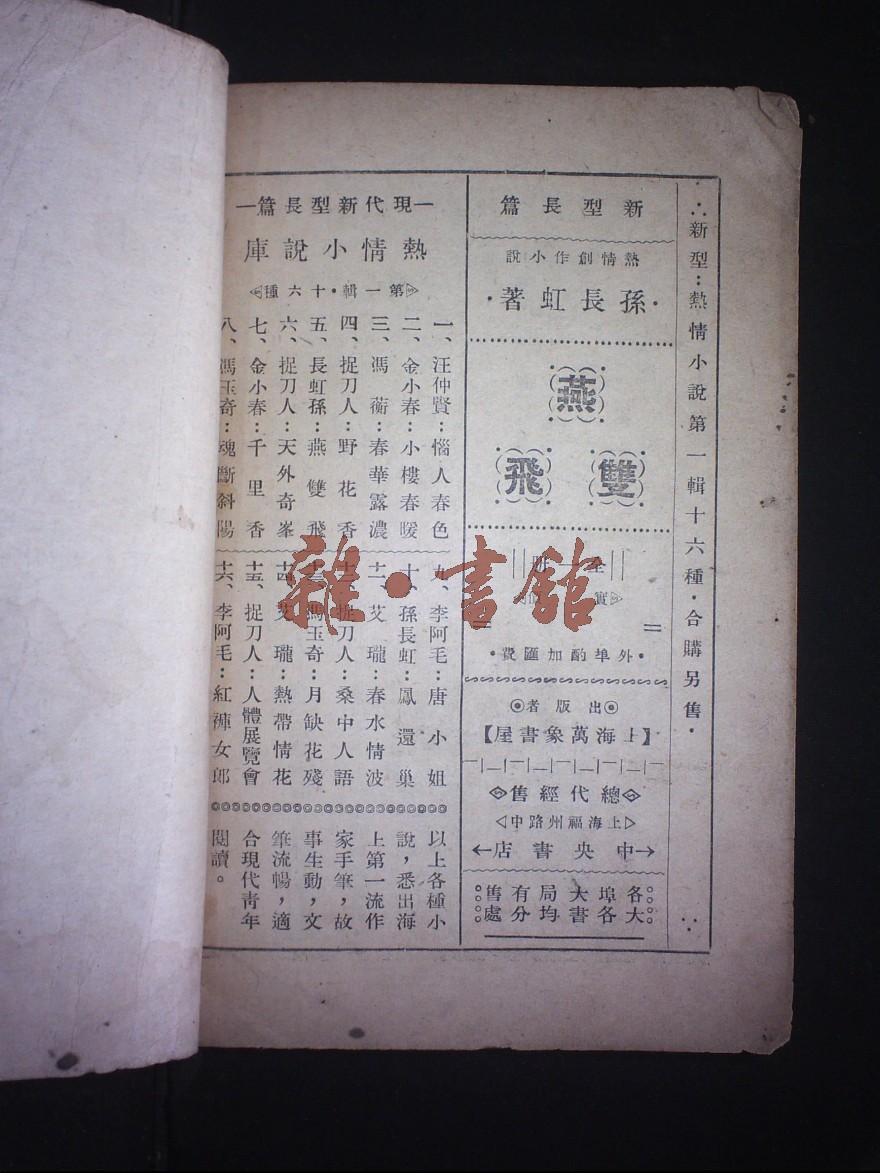 ∴新型：熱情小說第一輯十六種·合購另售·
新型長篇
熱情創作小說
·孫長虹著·
燕
雙飛
全一冊
實
·外埠酌加匯費·
◎出版者◎
【上海萬象書屋】
總代經售
▷上海福州路中◁
→中央書店←
各埠大局有售
大各書均分處
—現代新型長篇—
熱情小說庫
第一輯·十六種
一、汪仲賢：惱人春色
二、金小春：小樓春暖
三、馮蘅：春華露濃
四、捉刀人：野花香
五、長虹孫：燕雙飛
六、捉刀人：天外奇峯
七、金小春：千里香
八、馮玉奇：魂斷斜陽
九、李阿毛：唐小姐
十、孫長虹：鳳還巢
十一、艾瓏：春水情波
十二、捉刀人：桑中人語
十三、馮玉奇：月缺花殘
十四、艾瓏：熱帶情花
十五、捉刀人：人體展覽會
十六、李阿毛：紅褲女郎
以上各種小
說，悉出海
上第一流作
家手筆，故
事生動，文
筆流暢，適
合現代青年
閱讀。
雜·書館